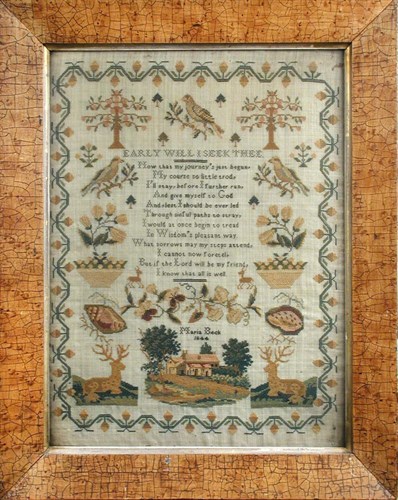 EARLY WILL I SEEK THEE
Now that my journey's just began
My course so little trod
I'll stay before I further run
And give myself to God
And lest I should be ever led
Through sinful paths to stray
I would at once begin to tread
In Wisdom's pleasant way
What sorrows may my steps attend
I cannot now foretell
But if the Lord will be my friend
I know that all is well
Maria Beck